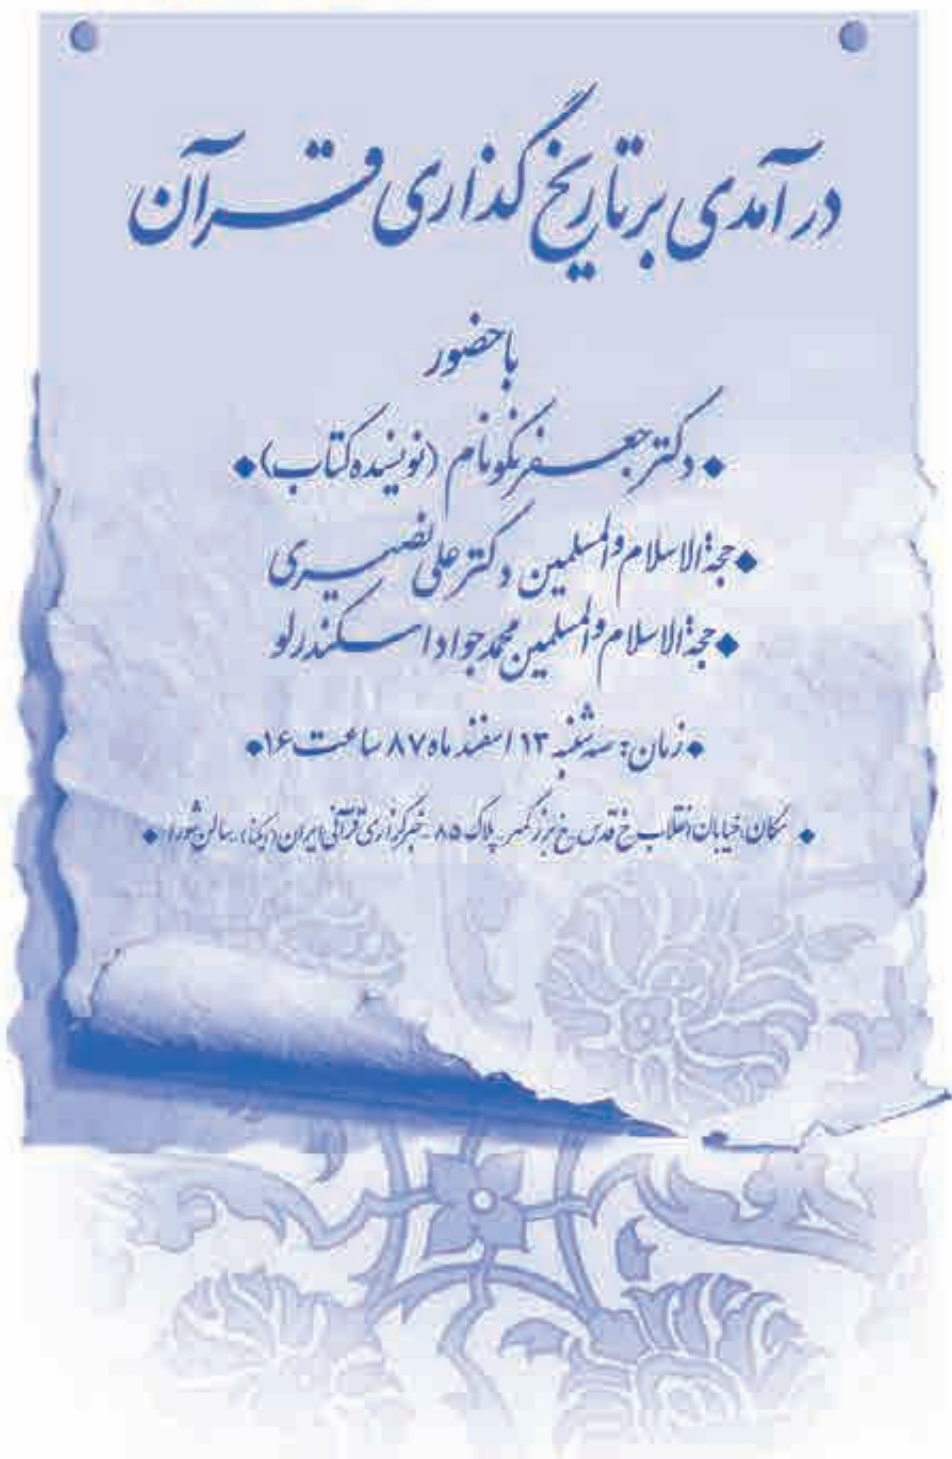 درآمدی بر تاریخ گذاری قرآن
با حضور
◆ دکتر جعفر نکونام (نویسنده کتاب) ◆
◆ حجةالاسلام والمسلمین دکتر علی نصیری
◆ حجةالاسلام والمسلمین محمدجواد اسکندرلو
◆ زمان: سه شنبه ۱۳ اسفند ماه ۸۷ ساعت ۱۶ ◆
◆ مکان: خیابان انقلاب خ قدس، خ بزرگمهر، پلاک ۸۵ خبرگزاری قرآنی ایران (ایکنا)، سالن شورا ◆